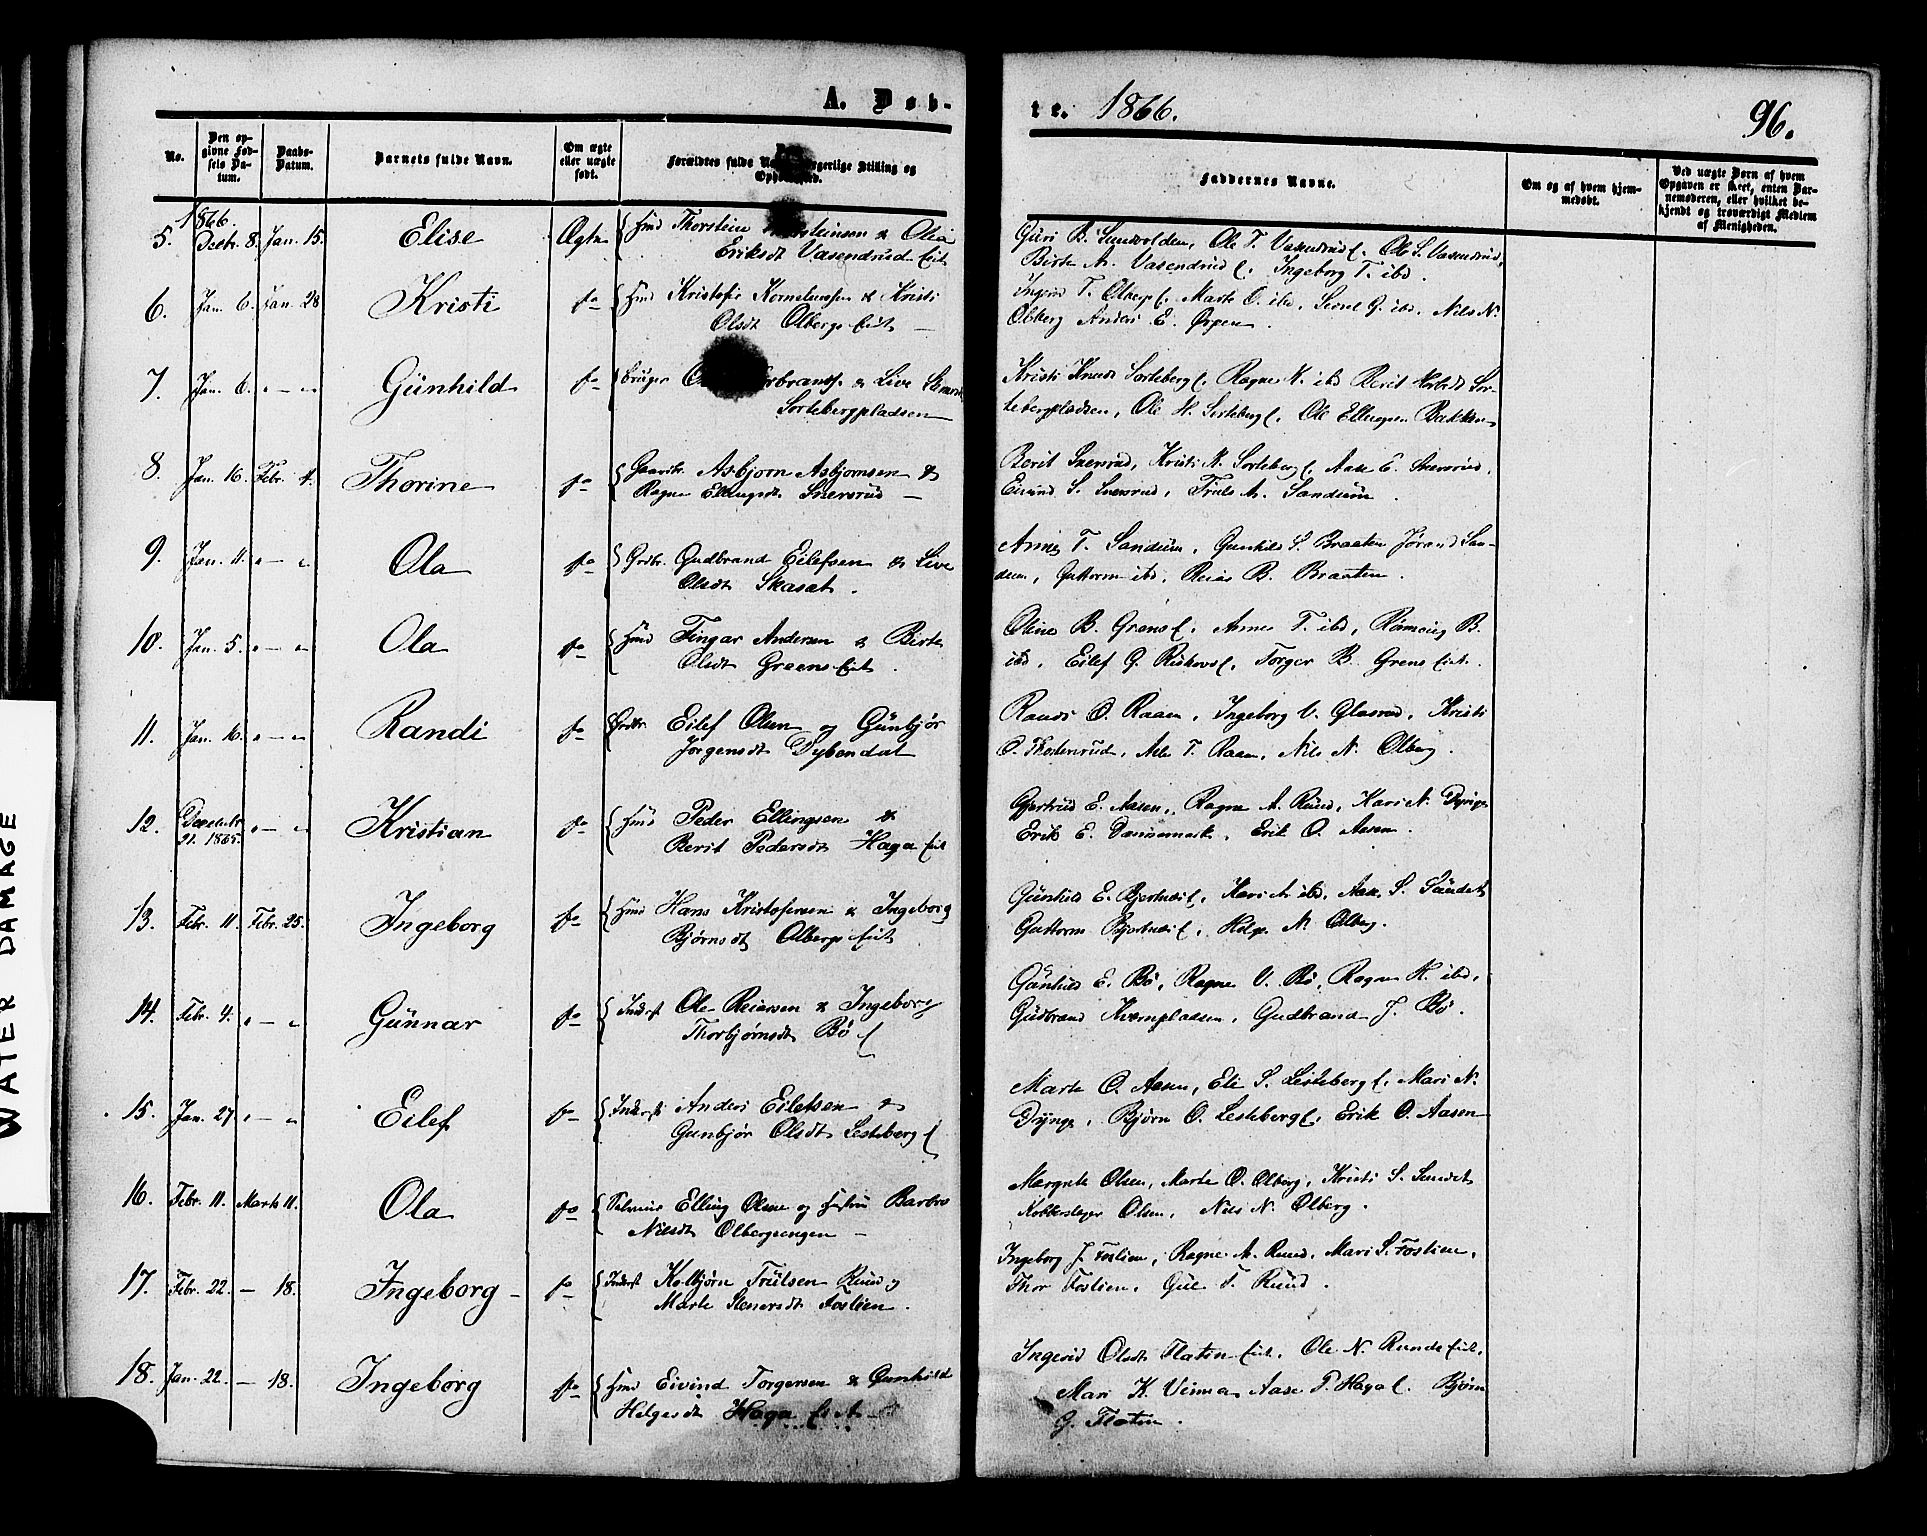 A. Døb-
te. 1866.
96.
No.
Den op-
givne Fød-
sels Da-
tum.
Daabs-
Datum.
Barnets fulde Navn.
Om ægte
eller uægte
født.
Forældres fulde Stilling og
Faddernes Navne.
Om og af hvem hjem-
medøbt.
Ved uægte Børn af hvem
Opgaven er skeet, enten Bar-
nemoderen, eller hvilket be-
kjendt og troværdigt Medlem
af Menigheden.
1866.
5. Decbr. 8. Jan. 15. Elise Ægte Hmd Thorstein & Olia
Eriksdt Vasendrud Eit
Guri B. Sundvolden, Ole T. Vasendrud, Ole S. Vasendrud,
Birte A. Vasendrud, Ingeborg T. ibd.
6. Jan. 6. Jan. 28 Kristi do Hmd Kristofer Kornelius & Kristi
Olsdt Olbergs Eiet
Ingrid T. Olberg, Marte O. ibd, G. ibd, Nils N.
Olberg Anders E. Ørpen.
7. Jan. 6. " — " Gunhild do Bruger & Live
Sortebergpladsen
Kristi Knuds Sorteberg, Ragne K. ibd Berit Sor-
tebergpladsen, Ole H. Sorteberg, Ole Ellingsen Bakken
8. Jan. 16. Febr. 4. Thorine do Asbjørn Asbjørnsen &
Ragne Ellingsdt Snersrud —
Berit Snersrud, Kristi K. Sorteberg, Aase E. Snersrud,
Eivind S. Snersrud, Truls A. Sandum.
9. Jan. 11. " — " Ola do Grdbr. Gudbrand Eilefsen & Live
Olsdt Skasat.
Anne T. Sandum, Gunhild S. Braaten Jørand San-
dum, Guttorm ibd, Reias B. Braaten.
10. Jan. 5. " — " Ola do Hmd Fingar Andersen & Birte
Olsdt Greens Eiet.
Oline B. Grens, Anne T. ibd, B.
ibd, Eilef G., Torger B. Grens Eiet.
11. Jan. 16. " — " Randi do Grdbr. Eilef Olsen og Gunbjør
Jørgensdt Dybendal
Randi O. Raaen, Ingeborg V. Glasrud, Kristi
O., Asle T. Raaen, Nils N. Olberg.
12. Decembr.
21. 1865. " — " Kristian do Hmd Peder Ellingsen &
Berit Pedersdt Haga Eiet
Gjertrud E. Aasen, Ragne A. Ruud, Kari N. Dynge
Erik E. Dannemark, Erik O. Aasen.
13. Febr. 11. Febr. 25. Ingeborg do Hmd Hans Kristofersen & Ingeborg
Bjørnsdt Olbergs Eiet
Gunhild E. Bjertnæs, Kari A. ibd, Aase S. Sundet
Guttorm Bjertnæs, Helge N. Olberg.
14. Febr. 4. " — " Gunnar do Inderst Ole Reiersen & Ingeborg
Thorbjørnsdt Bø
Gunhild E. Bø, Ragne V. Bø, Ragne K. ibd,
Gudbrand Kvernpladsen, Gudbrand J. Bø.
15. Jan. 27. " — " Eilef do Inderst Anders Eilefsen &
Gunbjør Olsdt Lesteberg
Marte O. Aasen, Eli S. Lesteberg, Mari N.
Dynge, Bjørn O. Lesteberg, Erik O. Aasen
16. Febr. 11. Marts 11. Ola do Elling Olsen og Hustru Barbro
Nilsdt Olbergsengen —
Margrete Olsen, Marte O. Olberg, Kristi S. Sundet
Kobberslager Olsen, Nils N. Olberg.
17. Febr. 22. — 18. Ingeborg do Inderst Kolbjørn Trulsen Ruud &
Marte Stenersdt Foslien.
Ingeborg J. Foslien, Ragne A. Ruud, Mari S. Foslien,
Thor Foslien, Gul T. Ruud.
18. Jan. 22. — 18. Ingeborg do Hmd Eivind Torgersen & Gunhild
Helgesdt Haga Eiet
Ingerid Olsdt Flatin Eiet, Ole N. Ruuds Eiet,
Mari K. Veime Aase P. Haga. Bjørn
G. Flatin.
WATER DAMAGE